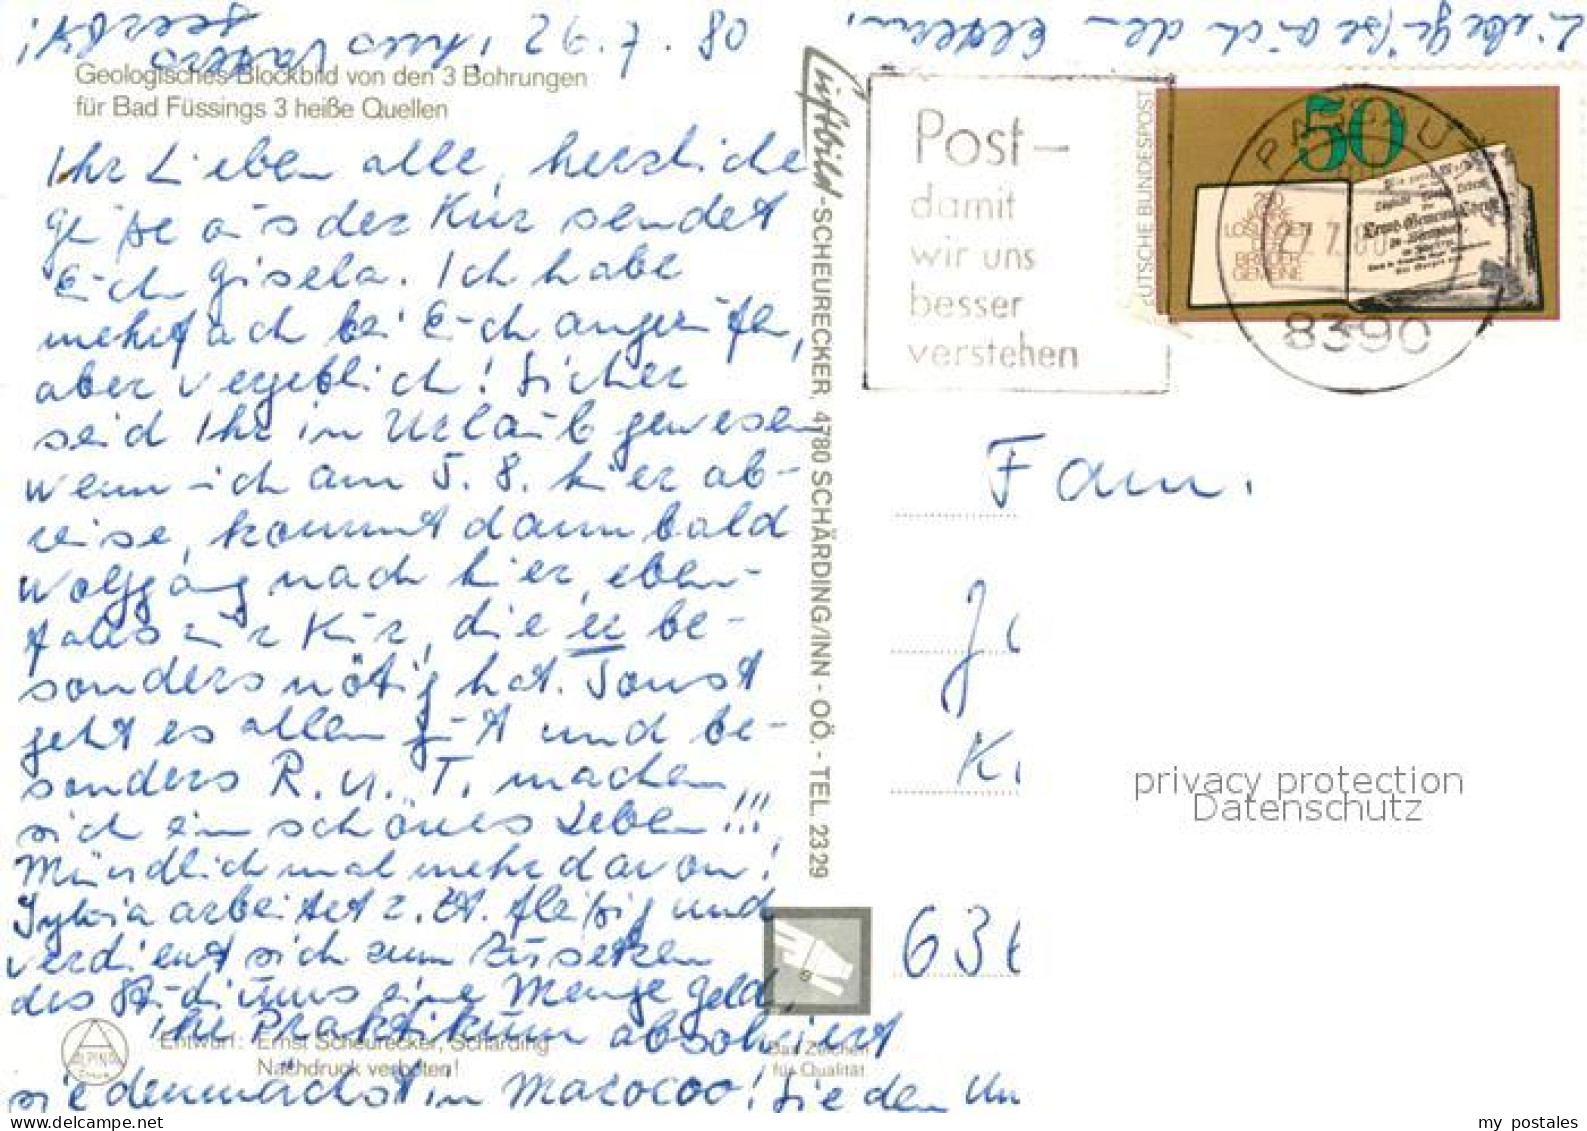 26.7.80
Liebe Grüße auch den Eltern!
Geologisches Blockbild von den 3 Bohrungen
für Bad Füssings 3 heiße Quellen
Ihr Lieben alle, herzliche
Grüße aus der Kur sendet
Euch Gisela. Ich habe
mehrfach bei Euch angerufen,
aber vergeblich! Sicher
seid Ihr in Urlaub gewesen
wenn ich am 5.8. hier ab-
reise, kommt dann bald
Wolfgang nach hier, eben-
falls zur Kur, die er be-
sonders nötig hat. Sonst
geht es allen gut und be-
sonders R. u. T. machen
sich ein schönes Leben!!!
Mündlich mal mehr davon!
Sylvia arbeitet z. Zt. fleißig und
verdient sich zum
des Studiums eine Menge Geld,
ihr Praktikum absolviert
sie demnächst in Marocco! Sie den
Entwurf: Ernst Scheurecker, Schärding
Nachdruck verboten!
ALPINA
Das Zeichen
für Qualität
Luftbild-SCHEURECKER, 4780 SCHÄRDING/INN - OÖ. - TEL. 23 29
Post-
damit
wir uns
besser
verstehen
DEUTSCHE BUNDESPOST
50
250
JAHRE
LOSUNGEN
DER
BRÜDER
GEMEINE
PASSAU
27.7.80
8390
Fam.
K
636
privacy protection
Datenschutz
my postales